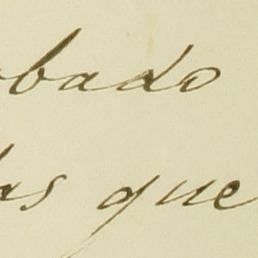 bado
as que